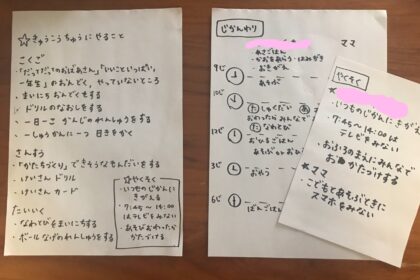 ☆きゅうこうちゅうにやること
こくご
「だってだってのおばあさん」「いいこといっぱい、
一年生」のおんどく、やっていないところ
・まいにち おんどくもする
・ドリルのなおしをする
・一日一こ かんじのれんしゅうをする
・一しゅうかんに一つ 日きをかく
さんすう
・「かたちづくり」できそうなもんだいをする
・けいさん ドリル
・けいさん カード
たいいく
・なわとびをまいにちする
・ボールなげのれんしゅうをする
☆やくそく
・いつものじかんに
きがえる
・7:45〜14:00
はテレビをみない
・あそびおわったらか
たづける
じかんわり
ママ
・あさごはん
・かおをあらう・はみがき
・おきがえ
9じ
・あそぶ
10じ
しゅくだい
おわったらみんなで
なわとび
12じ
・おひるごはん
3じ
・おやつ
6じ
・ばんごはん
やくそく
・いつものじかんにきが
・7:45〜14:00は
テレビをみない
・おふろのまえにみんなで
おかたづけする
★ママ
・こどもとあそぶときに
スマホをみない